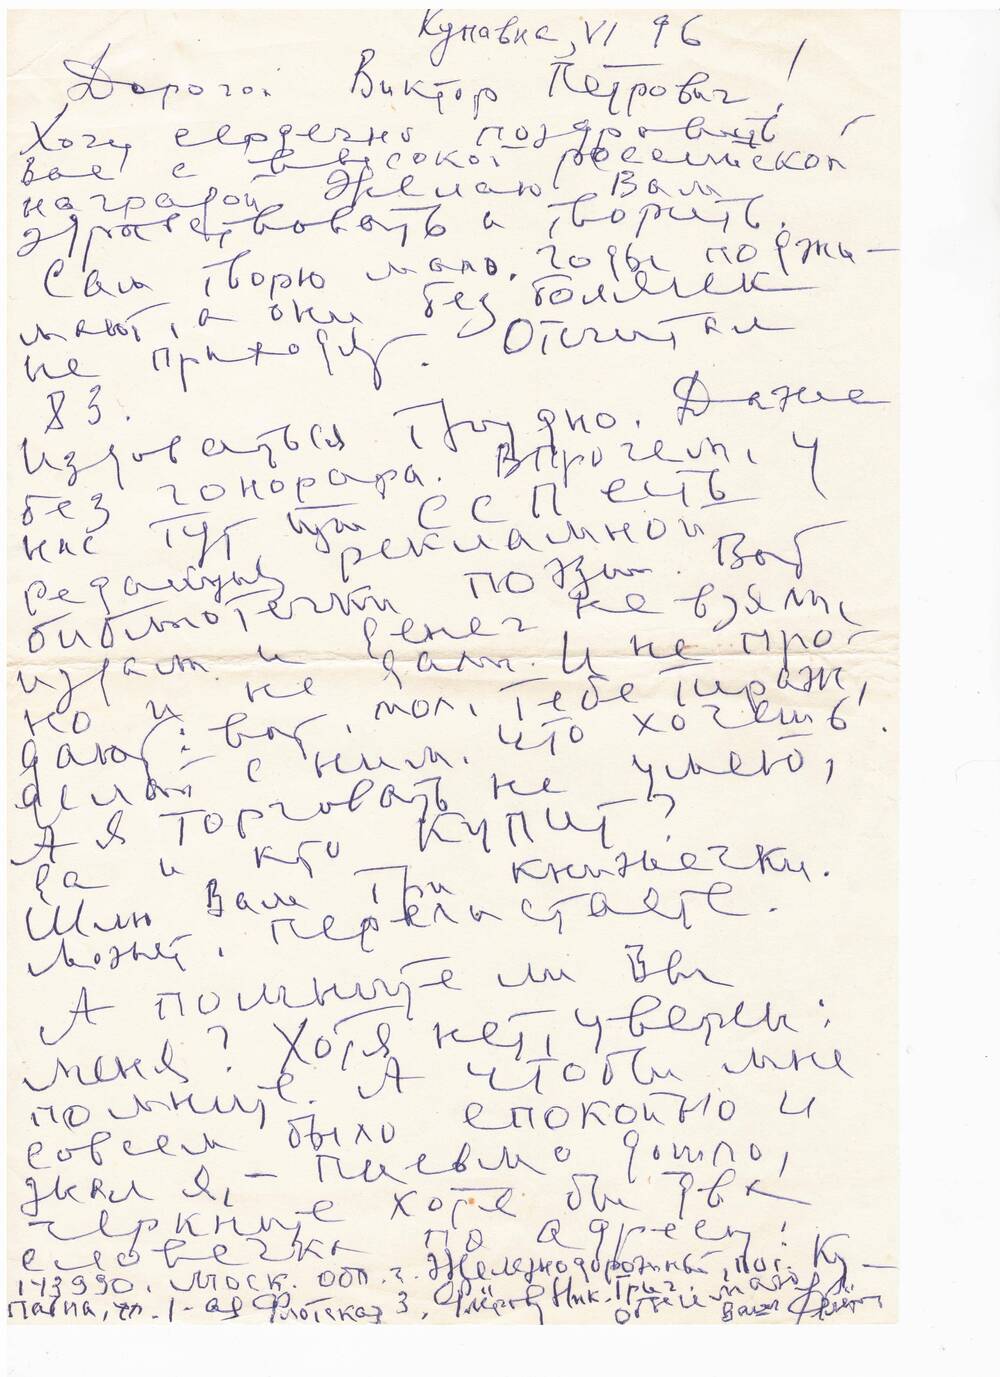 Купавна, VI 96
Дорогой Виктор Петрович!
Хочу сердечно поздравить
Вас с высокой российской
наградой. Желаю Вам
здравствовать и творить.
Сам творю мало. Годы поджи-
мают, а они без болячек
не приходят. Отсчитал
83.
Издаваться трудно. Даже
без гонорара. Впрочем, у
нас тут при ССП есть
редакция рекламной
библиотечки поэзии. Вот
издали и денег не взяли,
но и не дали. И не про-
дают: вот, мол, тебе тираж,
делай с ним, что хочешь.
А я торговать не умею,
да и кто купит?
Шлю Вам три книжечки.
Может, перелистаете.
А помните ли Вы
меня? Хотя нет, уверен:
помните. А чтобы мне
совсем было спокойно и
знал я, – письмо дошло,
черкните хотя бы два
словечка по адресу:
143990. Моск. обл. г. Железнодорожный, пос. Ку-
павна, ул. 1-ая Флотская 3, Флёрову Ник. Григ.
Ваш Флёров